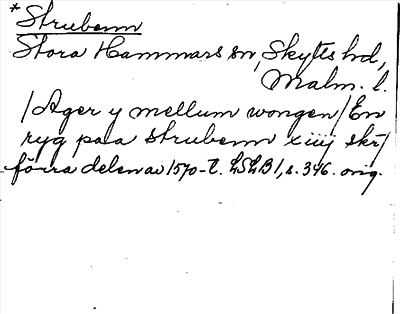 * Strubenn
Stora Hammars sn, Skytts hd,
Malm. l.
/Ager y mellum wongen/En
ryg paa strubenn xiiij skr/
förra delen av 1570-t. LSLB1, s. 346. orig.